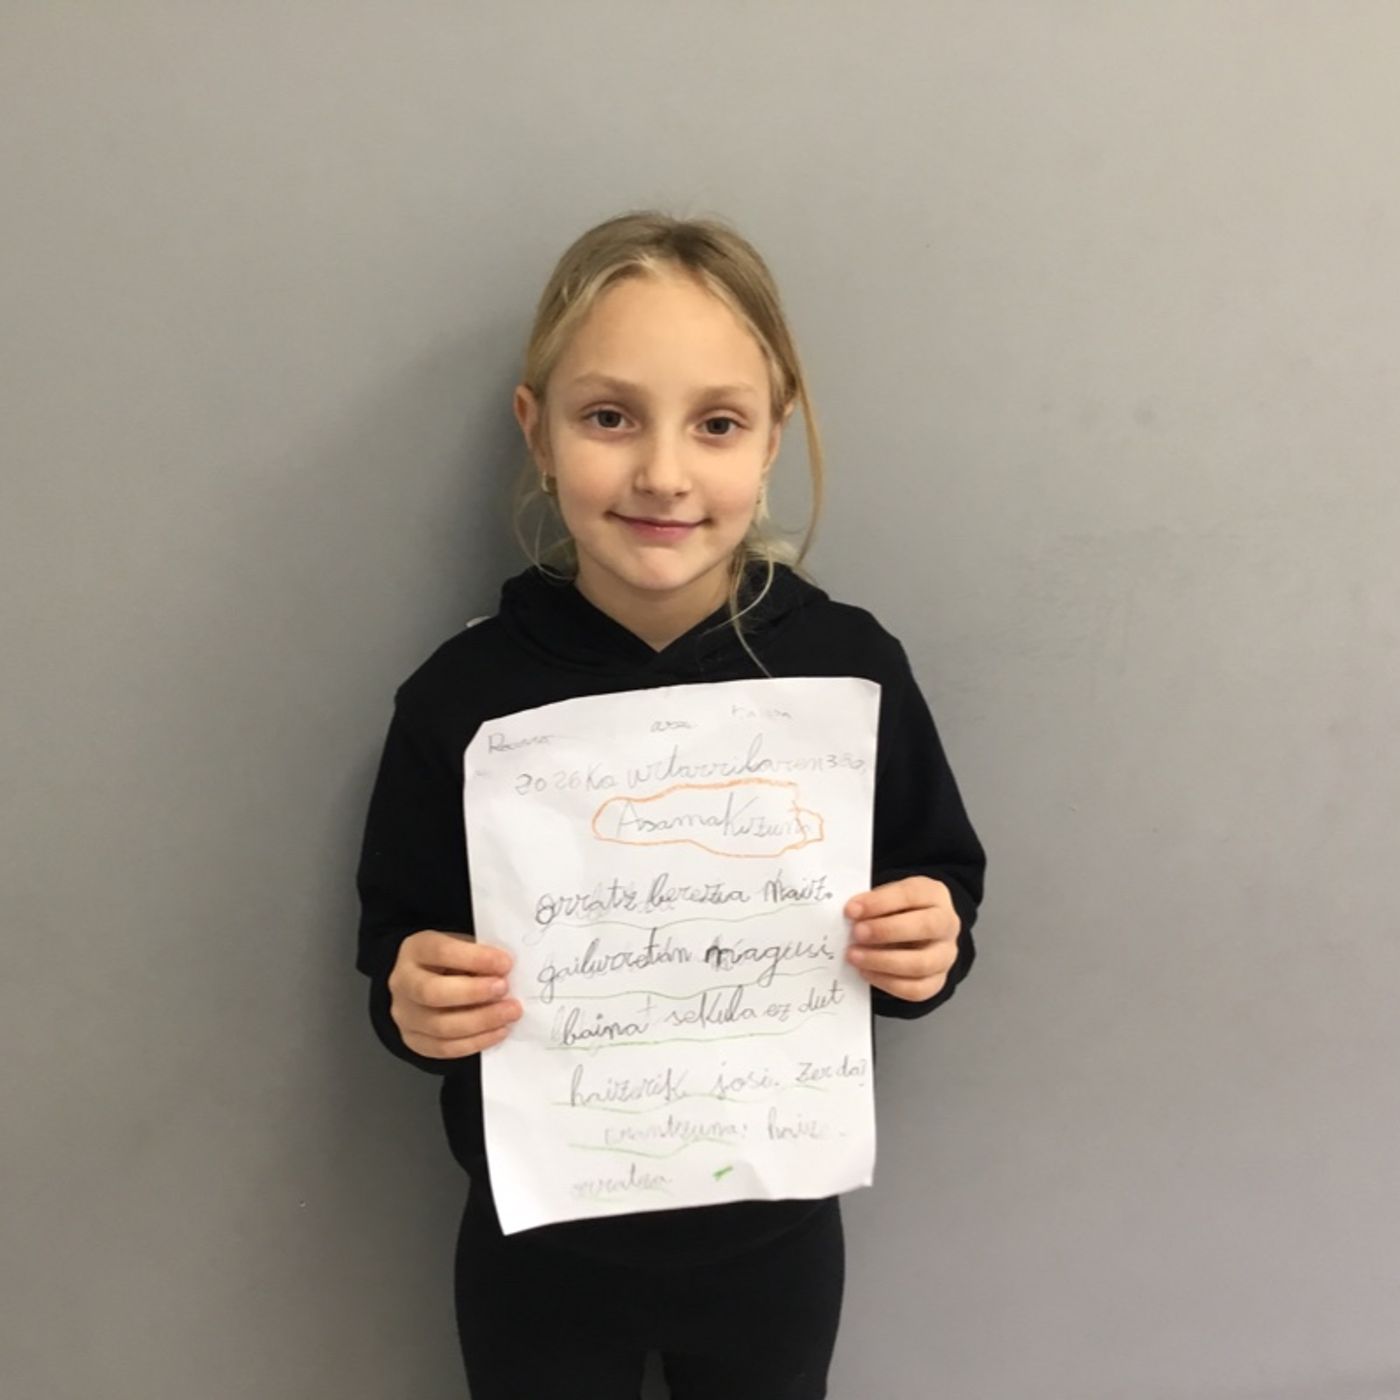 2026Ko urtarrilaren 30a,
AsamaKizuna
orratz berezia naiz.
gailurretan nagusi,
baina sekula ez dut
haizerik josi. Zer da?
erantzuna: haize.
orratza